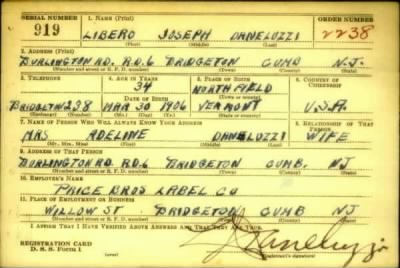 SERIAL NUMBER 1. NAME (Print) ORDER NUMBER
919 LIBERO JOSEPH DANELUZZI 2238
(First) (Middle) (Last)
2. ADDRESS (Print)
BURLINGTON RD. RD. 6 BRIDGETON CUMB N.J.
(Number and street or R. F. D. number) (Town) (County) (State)
3. TELEPHONE 4. AGE IN YEARS 5. PLACE OF BIRTH 6. COUNTRY OF CITIZENSHIP
34 NORTHFIELD
DATE OF BIRTH (Town or county)
BRIDGETON 238 MAR 30 1906 VERMONT U.S.A.
(Exchange) (Number) (Mo.) (Day) (Yr.) (State or country)
7. NAME OF PERSON WHO WILL ALWAYS KNOW YOUR ADDRESS 8. RELATIONSHIP OF THAT PERSON
MRS ADELINE DANELUZZI WIFE
(Mr., Mrs., Miss) (First) (Middle) (Last)
9. ADDRESS OF THAT PERSON
BURLINGTON RD. RD. 6 BRIDGETON CUMB. NJ
(Number and street or R. F. D. number) (Town) (County) (State)
10. EMPLOYER'S NAME
PRICE BROS LABEL CO
11. PLACE OF EMPLOYMENT OR BUSINESS
WILLOW ST BRIDGETON CUMB NJ
(Number and street or R. F. D. number) (Town) (County) (State)
I AFFIRM THAT I HAVE VERIFIED ABOVE ANSWERS AND THAT THEY ARE TRUE.
REGISTRATION CARD
D. S. S. Form 1 Daneluzzi
(Registrant's signature)